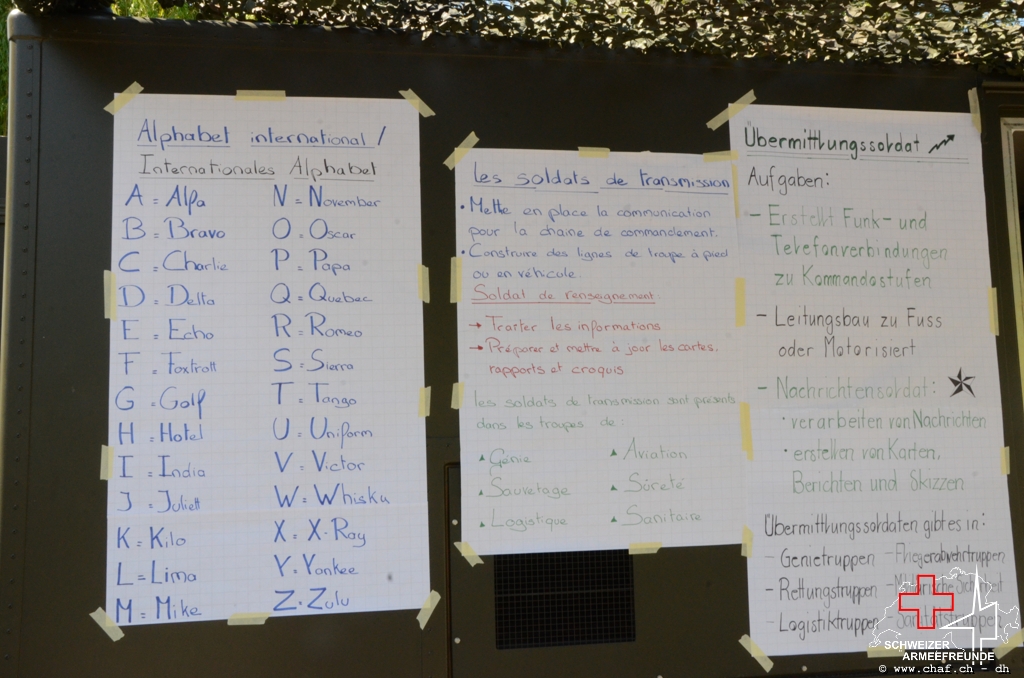 Alphabet international /
Internationales Alphabet
A = Alfa
B = Bravo
C = Charlie
D = Delta
E = Echo
F = Foxtrott
G = Golf
H = Hotel
I = India
J = Juliett
K = Kilo
L = Lima
M = Mike
N = November
O = Oscar
P = Papa
Q = Quebec
R = Romeo
S = Sierra
T = Tango
U = Uniform
V = Victor
W = Whisky
X = X-Ray
Y = Yankee
Z = Zulu
Les soldats de transmission
• Mettre en place la communication
pour la chaine de commandement.
• Construire des lignes de troupe à pied
ou en véhicule.
Soldat de renseignement:
→ Traiter les informations
→ Préparer et mettre à jour les cartes,
rapports et croquis
Les soldats de transmission sont présents
dans les troupes de :
▲ Génie
▲ Sauvetage
▲ Logistique
▲ Aviation
▲ Sûreté
▲ Sanitaire
Übermittlungssoldat
Aufgaben:
- Erstellt Funk- und
Telefonverbindungen
zu Kommandostufen
- Leitungsbau zu Fuss
oder Motorisiert
- Nachrichtensoldat:
• verarbeiten von Nachrichten
• erstellen von Karten,
Berichten und Skizzen
Übermittlungssoldaten gibt es in:
- Genietruppen
- Rettungstruppen
- Logistiktruppen
- Fliegerabwehrtruppen
- Militärische Sicherheit
- Sanitätstruppen
SCHWEIZER
ARMEEFREUNDE
© www.chaf.ch - dh